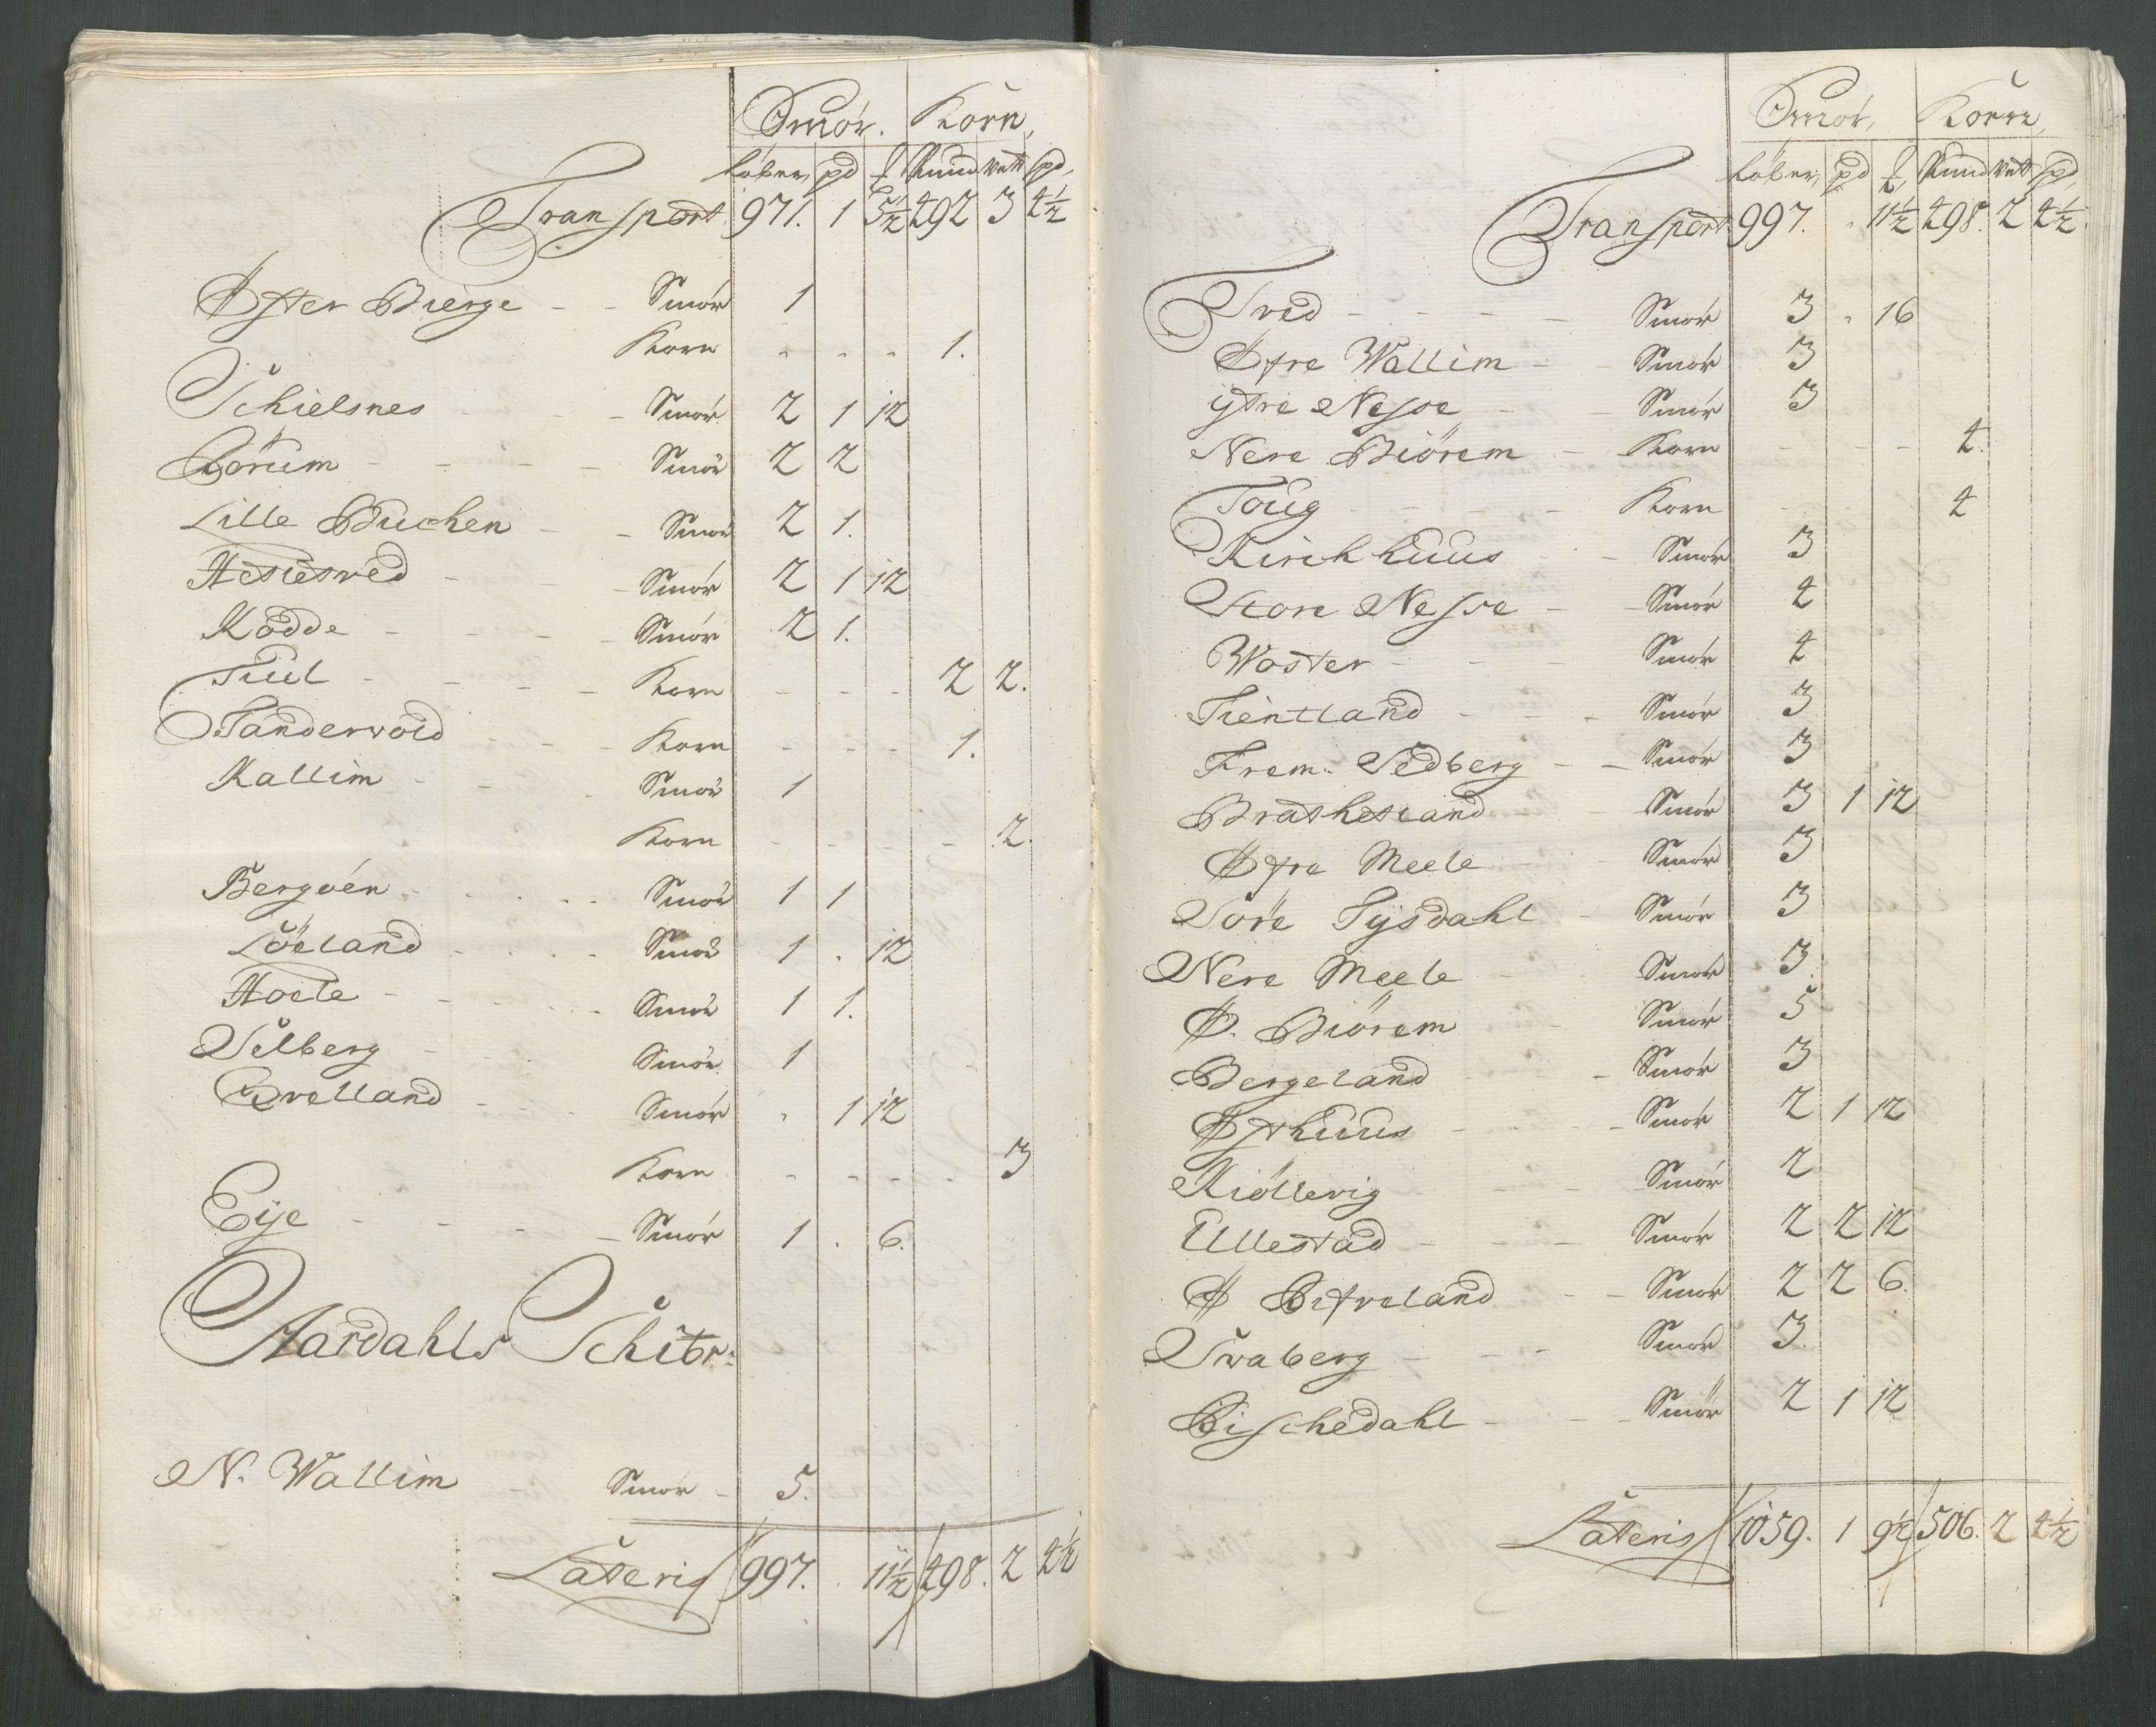 Smör. Korn,
löber, pd ℔ Pund Vett spd,
Transport 971. 1 5½ 492 3 4½
Øster Bierge - - Smör 1
Korn - - - 1.
Schielsnes - Smör 2 1 12
Börum - - - - Smör 2 2
Lille Buchen - - Smör 2 1.
Hetletved - - Smör 2 1 12
Kodde - - - - Smör 2 1.
Tiul - - - - Korn - - - 2 2.
Tandervold - - - Korn - - - 1.
Kallim - - - Smör 1
Korn - - - - 2.
Bergöen - - - Smör 1 1
Löeland - - - - Smör 1 . 12
Hoele - - - - Smör 1 1.
Selberg - Smör 1
Qvelland - - - Smör . 1 12
Korn - - - - 3
Eije - - - - Smör 1 . 6.
Aardahls Schibr:
N. Wallim Smör - 5.
Lateris 997. . 11½ 498. 2 4½
Smör, Korn,
löber, pd ℔ Pund Vett spd,
Transport 997. . 11½ 498. 2 4½.
Tved - - - - Smör 3 . 16
Øfre Wallim - - Smör 3
ytre Nesse - - Smör 3
Nere Biörem - Korn - - - 4.
Toug - - - - Korn - - - 4
Kirchhuus - Smör 3
Store Nesse - - Smör 4
Woster - - - Smör 4
Tientland - - - Smör 3
Frem. Sedberg - - Smör 3
Brathetland - Smör 3 1 12
Øfre Meele - - Smör 3
Söre Tysdahl - Smör 3
Nere Meele - Smör 3.
Ø. Biörem - Smör 5
Bergeland - Smör 3
Østhuus - - - - Smör 2 1 12
Kiöllevig - - - Smör 2
Ullestad - - - Smör 2 2 12
Ø Østreland - - Smör 2 2 6.
Svaberg - - - Smör 3.
Fischedahl - - - Smör 2 1 12
Lateris 1059. 1 9½ 506. 2 4½